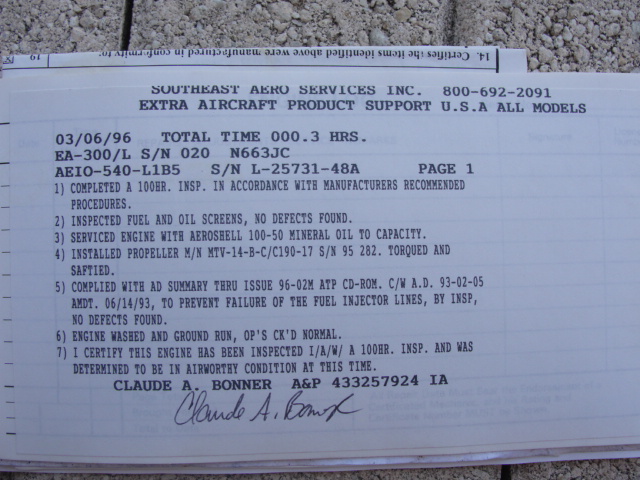 14. Certifies the items identified above were manufactured in conformity to:
19
SOUTHEAST AERO SERVICES INC. 800-692-2091
EXTRA AIRCRAFT PRODUCT SUPPORT U.S.A ALL MODELS
03/06/96 TOTAL TIME 000.3 HRS.
EA-300/L S/N 020 N663JC
AEIO-540-L1B5 S/N L-25731-48A PAGE 1
1) COMPLETED A 100HR. INSP. IN ACCORDANCE WITH MANUFACTURERS RECOMMENDED
PROCEDURES.
2) INSPECTED FUEL AND OIL SCREENS, NO DEFECTS FOUND.
3) SERVICED ENGINE WITH AEROSHELL 100-50 MINERAL OIL TO CAPACITY.
4) INSTALLED PROPELLER M/N MTV-14-B-C/C190-17 S/N 95 282. TORQUED AND
SAFTIED.
5) COMPLIED WITH AD SUMMARY THRU ISSUE 96-02M ATP CD-ROM. C/W A.D. 93-02-05
AMDT. 06/14/93, TO PREVENT FAILURE OF THE FUEL INJECTOR LINES, BY INSP,
NO DEFECTS FOUND.
6) ENGINE WASHED AND GROUND RUN, OP'S CK'D NORMAL.
7) I CERTIFY THIS ENGINE HAS BEEN INSPECTED I/A/W/ A 100HR. INSP. AND WAS
DETERMINED TO BE IN AIRWORTHY CONDITION AT THIS TIME.
CLAUDE A. BONNER A&P 433257924 IA
Claude A. Bonner